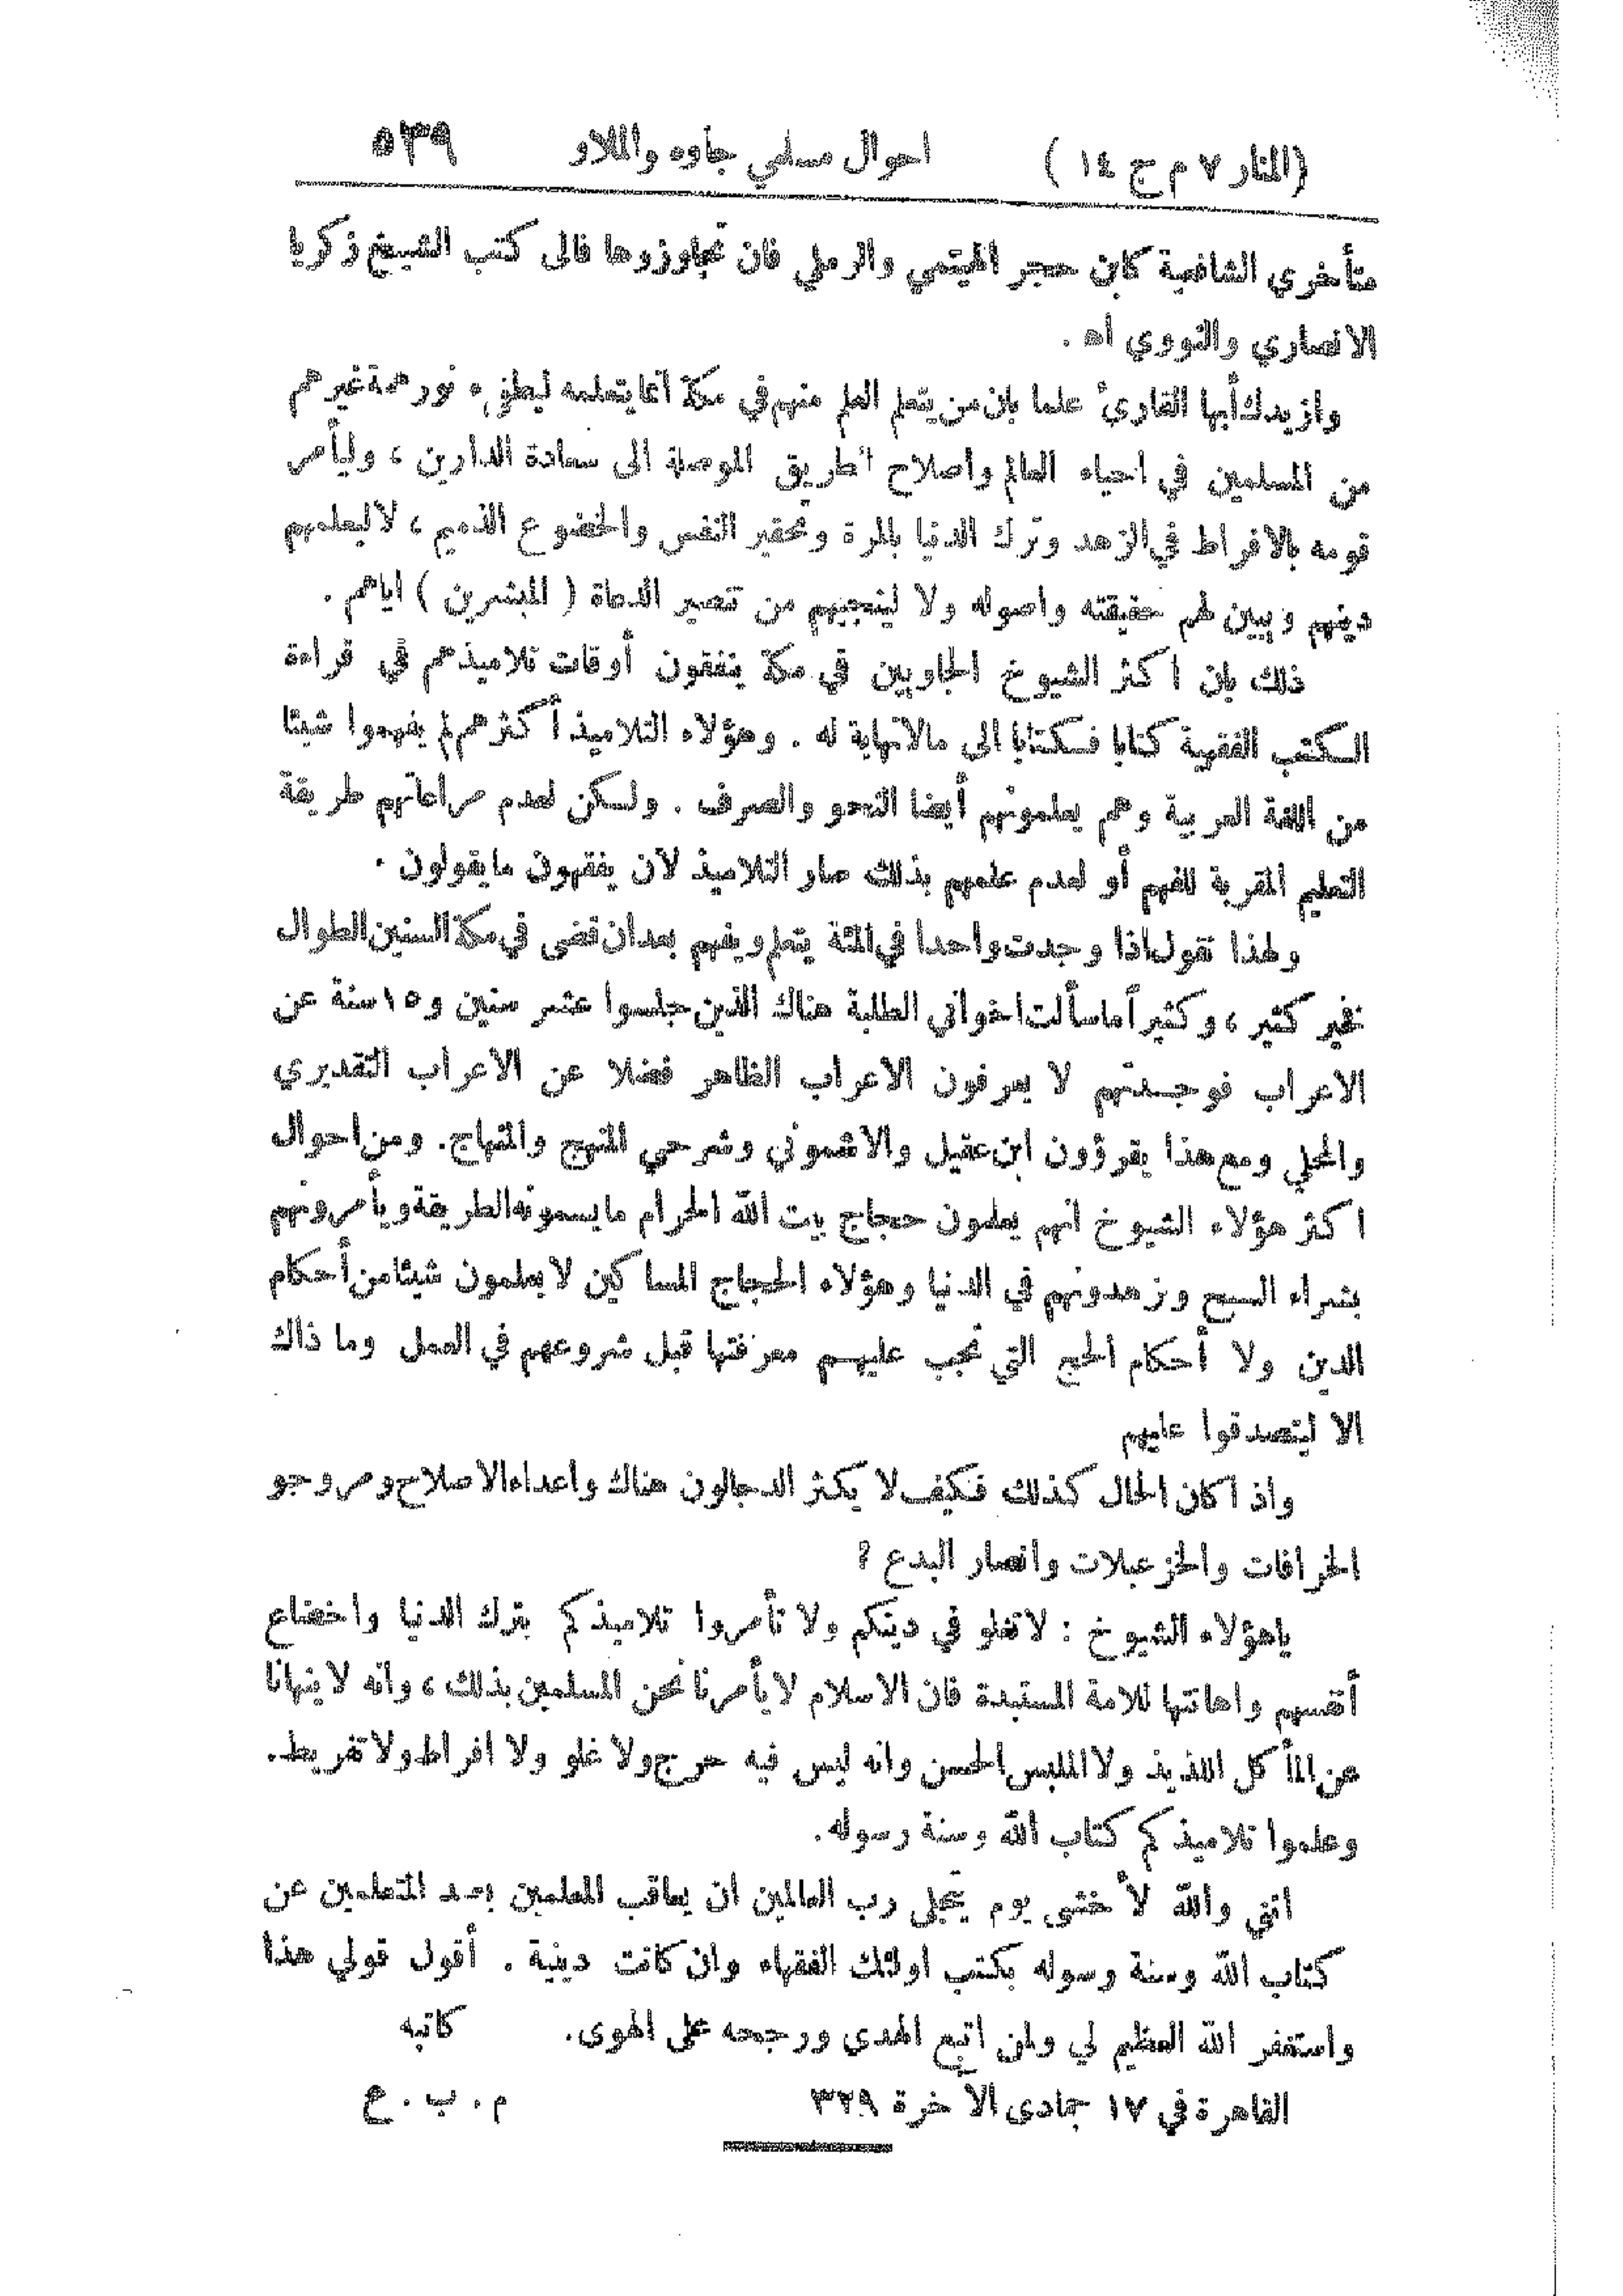 (المنار ٧ م ج ١٤) احوال مسلمي جاوه والملاو ٥٣٩
متأخري الشافعية كابن حجر الهيتمي والرملي فان تجاوزوها فالى كتب الشيخ زكريا
الانصاري والنووي اه .
وازيدك أيها القارئ علما بان من يتعلم العلم منهم في مكة انما يتعلمه ليطفئ نور همة غيرهم
من المسلمين في احياء العالم واصلاح الطريق الموصلة الى سعادة الدارين ، وليأمر
قومه بالافراط في الزهد وترك الدنيا بالمرة وتحقير النفس والخضوع الذميم ، لا ليعلمهم
دينهم ويبين لهم حقيقته واصوله ولا لينجيهم من تنصير الدعاة ( المبشرين ) اياهم .
ذلك بان اكثر الشيوخ الجاويين في مكة ينفقون أوقات تلاميذهم في قراءة
الكتب الفقهية كتابا فكتابا الى مالانهاية له . وهؤلاء التلاميذ أكثرهم لم يفهموا شيئا
من اللغة العربية وهم يعلمونهم أيضا النحو والصرف . ولكن لعدم مراعاتهم طريقة
التعليم المقربة للفهم أو لعدم علمهم بذلك صار التلاميذ لان يفقهون ما يقولون .
ولهذا نقول اذا وجدت واحدا في المئة يتعلم ويفهم بعد ان قضى في مكة السنين الطوال
فخير كثير ، وكثيرا ما سألت اخواني الطلبة هناك الذين جلسوا عشر سنين و١٥ سنة عن
الاعراب فوجدتهم لا يعرفون الاعراب الظاهر فضلا عن الاعراب التقديري
والمحلي ومع هذا يقرؤون ابن عقيل والاشموني وشرحي المنهج والمنهاج. ومن احوال
اكثر هؤلاء الشيوخ انهم يعلمون حجاج بيت الله الحرام ما يسمونه الطريقة ويأمرونهم
بشراء السبح وزهدونهم في الدنيا وهؤلاء الحجاج المساكين لا يعلمون شيئا من أحكام
الدين ولا أحكام الحج التي تجب عليهم معرفتها قبل شروعهم في العمل وما ذاك
الا ليتصدقوا عليهم
واذا كان الحال كذلك فكيف لا يكثر الدجالون هناك واعداء الاصلاح ومروجو
الخرافات والخزعبلات وانصار البدع ؟
ياهؤلاء الشيوخ : لا تغلو في دينكم ولا تأمروا تلاميذكم بترك الدنيا واخضاع
أنفسهم واهانتها للامة المستبدة فان الاسلام لا يأمرنا نحن المسلمين بذلك ، وانه لا ينهانا
عن المأكل اللذيذ ولا الملبس الحسن وانه ليس فيه حرج ولا غلو ولا افراط ولا تفريط.
وعلموا تلاميذكم كتاب الله وسنة رسوله.
انني والله لأخشى يوم يتجلى رب العالمين ان يعاقب المعلمين بعد المتعلمين عن
كتاب الله وسنة رسوله بكتب اولئك الفقهاء وان كانت دينية . أقول قولي هذا
واستغفر الله العظيم لي ولمن اتبع الهدي ورجحه على الهوى. كاتبه
القاهرة في ١٧ جمادى الآخرة ٣٢٩ م . ب . ع